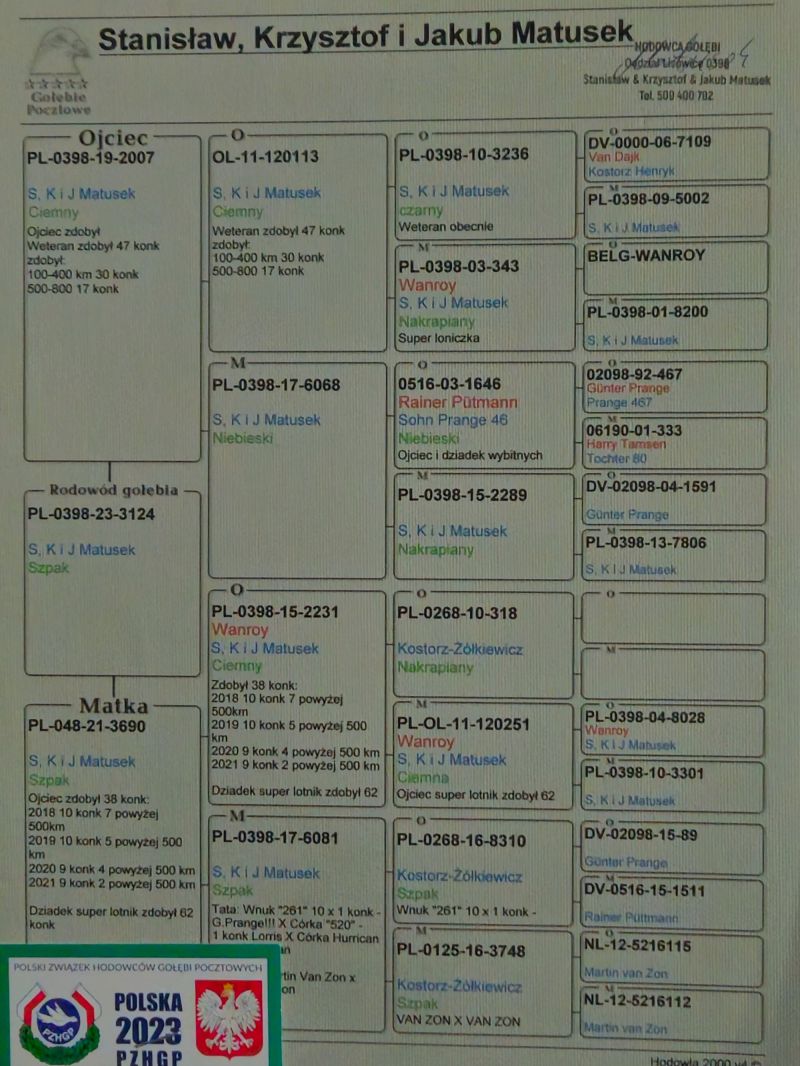 Stanisław, Krzysztof i Jakub Matusek
HODOWCA GOŁĘBI
0398
Stanisław & Krzysztof & Jakub Matusek
Tel. 500 400 702
Gołębie
Pocztowe
Ojciec
PL-0398-19-2007
S, K i J Matusek
Ciemny
Ojciec zdobył
Weteran zdobył 47 konk
zdobył:
100-400 km 30 konk
500-800 17 konk
Rodowód gołębia
PL-0398-23-3124
S, K i J Matusek
Szpak
Matka
PL-048-21-3690
S, K i J Matusek
Szpak
Ojciec zdobył 38 konk:
2018 10 konk 7 powyżej
500km
2019 10 konk 5 powyżej 500
km
2020 9 konk 4 powyżej 500 km
2021 9 konk 2 powyżej 500 km
Dziadek super lotnik zdobył 62
konk
O
OL-11-120113
S, K i J Matusek
Ciemny
Weteran zdobył 47 konk
zdobył:
100-400 km 30 konk
500-800 17 konk
M
PL-0398-17-6068
S, K i J Matusek
Niebieski
O
PL-0398-15-2231
Wanroy
S, K i J Matusek
Ciemny
Zdobył 38 konk:
2018 10 konk 7 powyżej
500km
2019 10 konk 5 powyżej 500
km
2020 9 konk 4 powyżej 500 km
2021 9 konk 2 powyżej 500 km
Dziadek super lotnik zdobył 62
M
PL-0398-17-6081
S, K i J Matusek
Szpak
Tata: Wnuk "261" 10 x 1 konk -
G.Prange!!! X Córka "520" -
1 konk Lorris X Córka Hurrican
an
rtin Van Zon x
on
O
PL-0398-10-3236
S, K i J Matusek
czarny
Weteran obecnie
M
PL-0398-03-343
Wanroy
S, K i J Matusek
Nakrapiany
Super loniczka
O
0516-03-1646
Rainer Pütmann
Sohn Prange 46
Niebieski
Ojciec i dziadek wybitnych
M
PL-0398-15-2289
S, K i J Matusek
Nakrapiany
O
PL-0268-10-318
Kostorz-Żółkiewicz
Nakrapiany
M
PL-OL-11-120251
Wanroy
S, K i J Matusek
Ciemna
Ojciec super lotnik zdobył 62
O
PL-0268-16-8310
Kostorz-Żółkiewicz
Szpak
Wnuk "261" 10 x 1 konk -
M
PL-0125-16-3748
Kostorz-Żółkiewicz
Szpak
VAN ZON X VAN ZON
O
DV-0000-06-7109
Van Dajk
Kostorz Henryk
M
PL-0398-09-5002
S, K i J Matusek
O
BELG-WANROY
M
PL-0398-01-8200
S, K i J Matusek
O
02098-92-467
Günter Prange
Prange 467
M
06190-01-333
Harry Tamsen
Tochter 80
O
DV-02098-04-1591
Günter Prange
M
PL-0398-13-7806
S, K i J Matusek
O
M
O
PL-0398-04-8028
Wanroy
S, K i J Matusek
M
PL-0398-10-3301
S, K i J Matusek
O
DV-02098-15-89
Günter Prange
M
DV-0516-15-1511
Rainer Püttmann
O
NL-12-5216115
Martin van Zon
M
NL-12-5216112
Martin van Zon
POLSKI ZWIĄZEK HODOWCÓW GOŁĘBI POCZTOWYCH
PZHGP
POLSKA
2023
PZHGP
Hodowla 2000